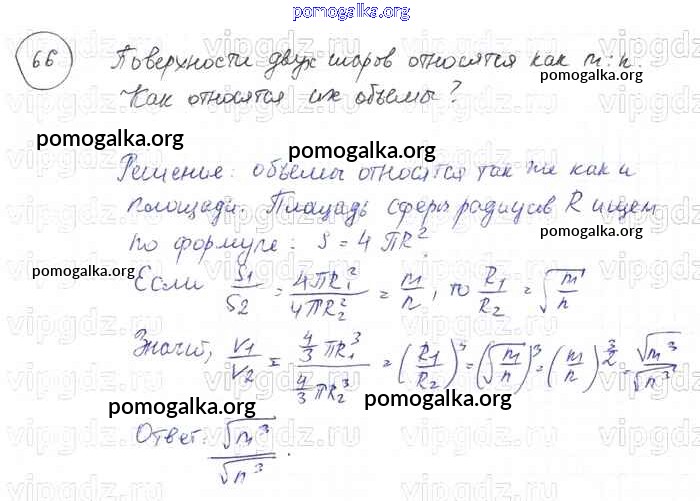 pomogalka.org
66 Поверхности двух шаров относятся как m:n.
Как относятся их объемы?
pomogalka.org
pomogalka.org
Решение: объемы относятся так же как и
площади. Площадь сферы радиусов R ищем
по формуле: S = 4πR²
pomogalka.org
pomogalka.org
Если S1/S2 = 4πR1²/4πR2² = m/n, то R1/R2 = √(m/n)
Значит, V1/V2 = (4/3 πR1³)/(4/3 πR2³) = (R1/R2)³ = (√(m/n))³ = (m/n)^(3/2) = √m³/√n³
pomogalka.org
pomogalka.org
Ответ: √m³/√n³.
vipgdz.ru